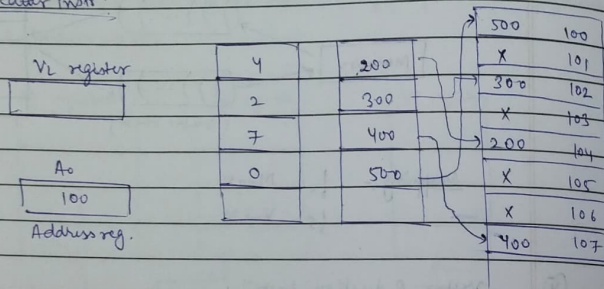 VL register
A0
100
Address reg.
4 200
2 300
7 400
0 500
500 100
X 101
300 102
X 103
200 104
X 105
X 106
400 107